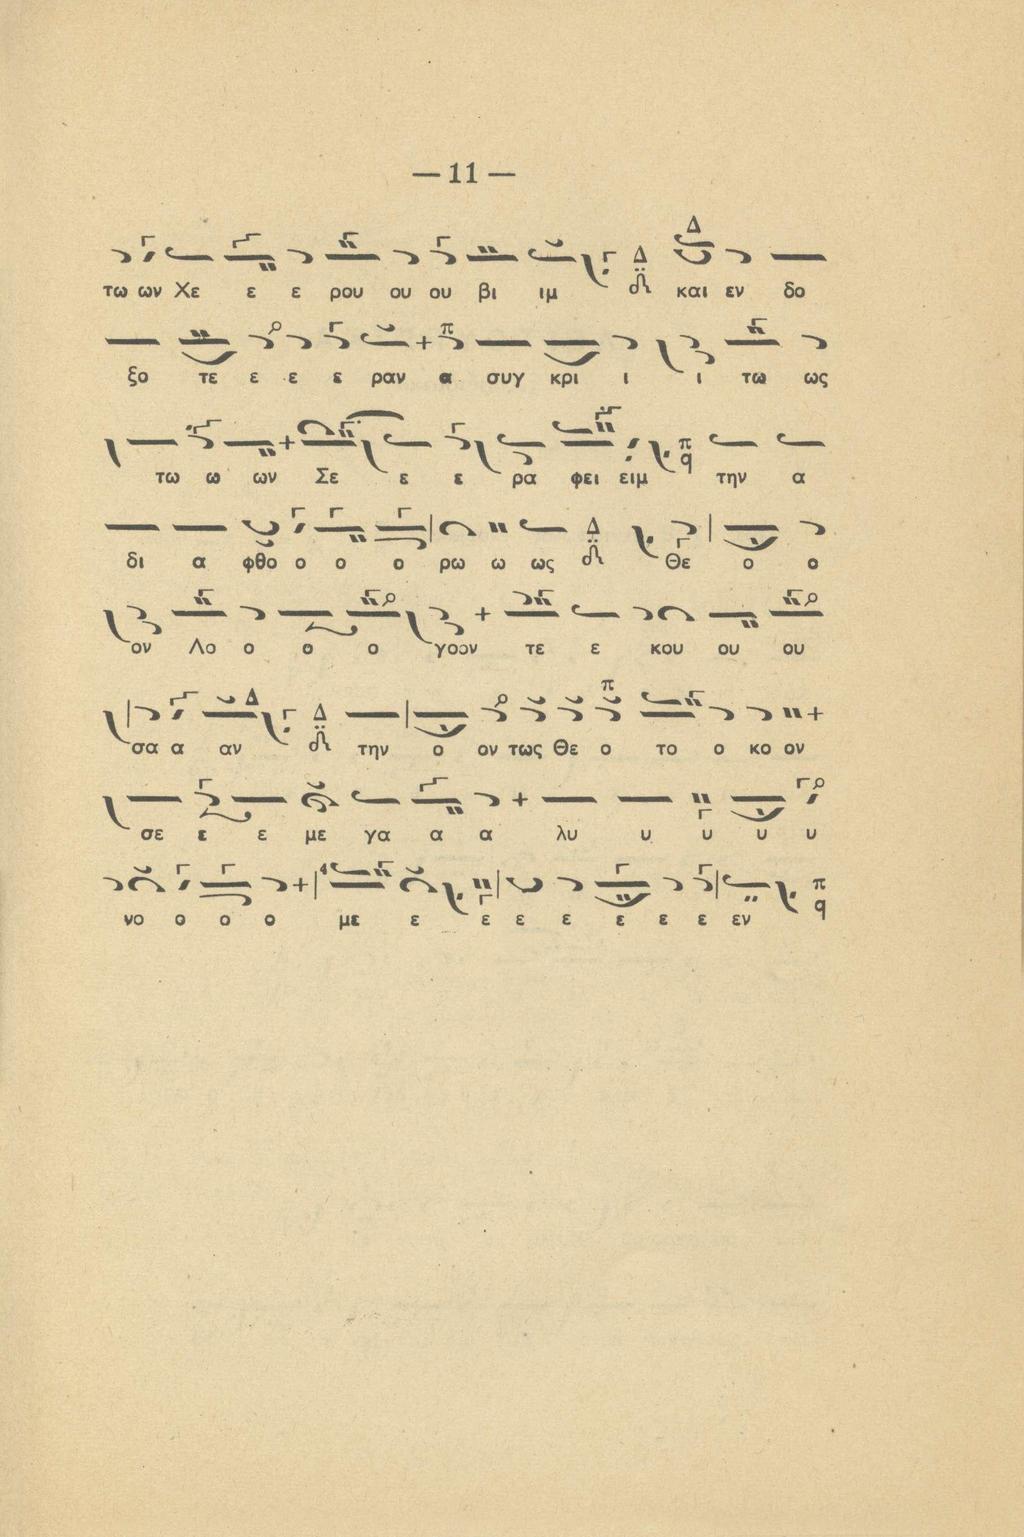 — 11 —
τω ων Χε ε ε ρου ου ου βι ιμ και εν δο
ξο τε ε ε ε ραν α συγ κρι ι ι τω ως
τω ω ων Σε ε ε ρα φει ειμ την α
δι α φθο ο ο ο ρω ω ως Θε ο ο
ον Λο ο ο ο γοον τε ε κου ου ου
σα α αν την ο ον τως Θε ο το ο κο ον
σε ε ε με γα α α λυ υ υ υ υ
νο ο ο ο με ε ε ε ε ε ε ε εν